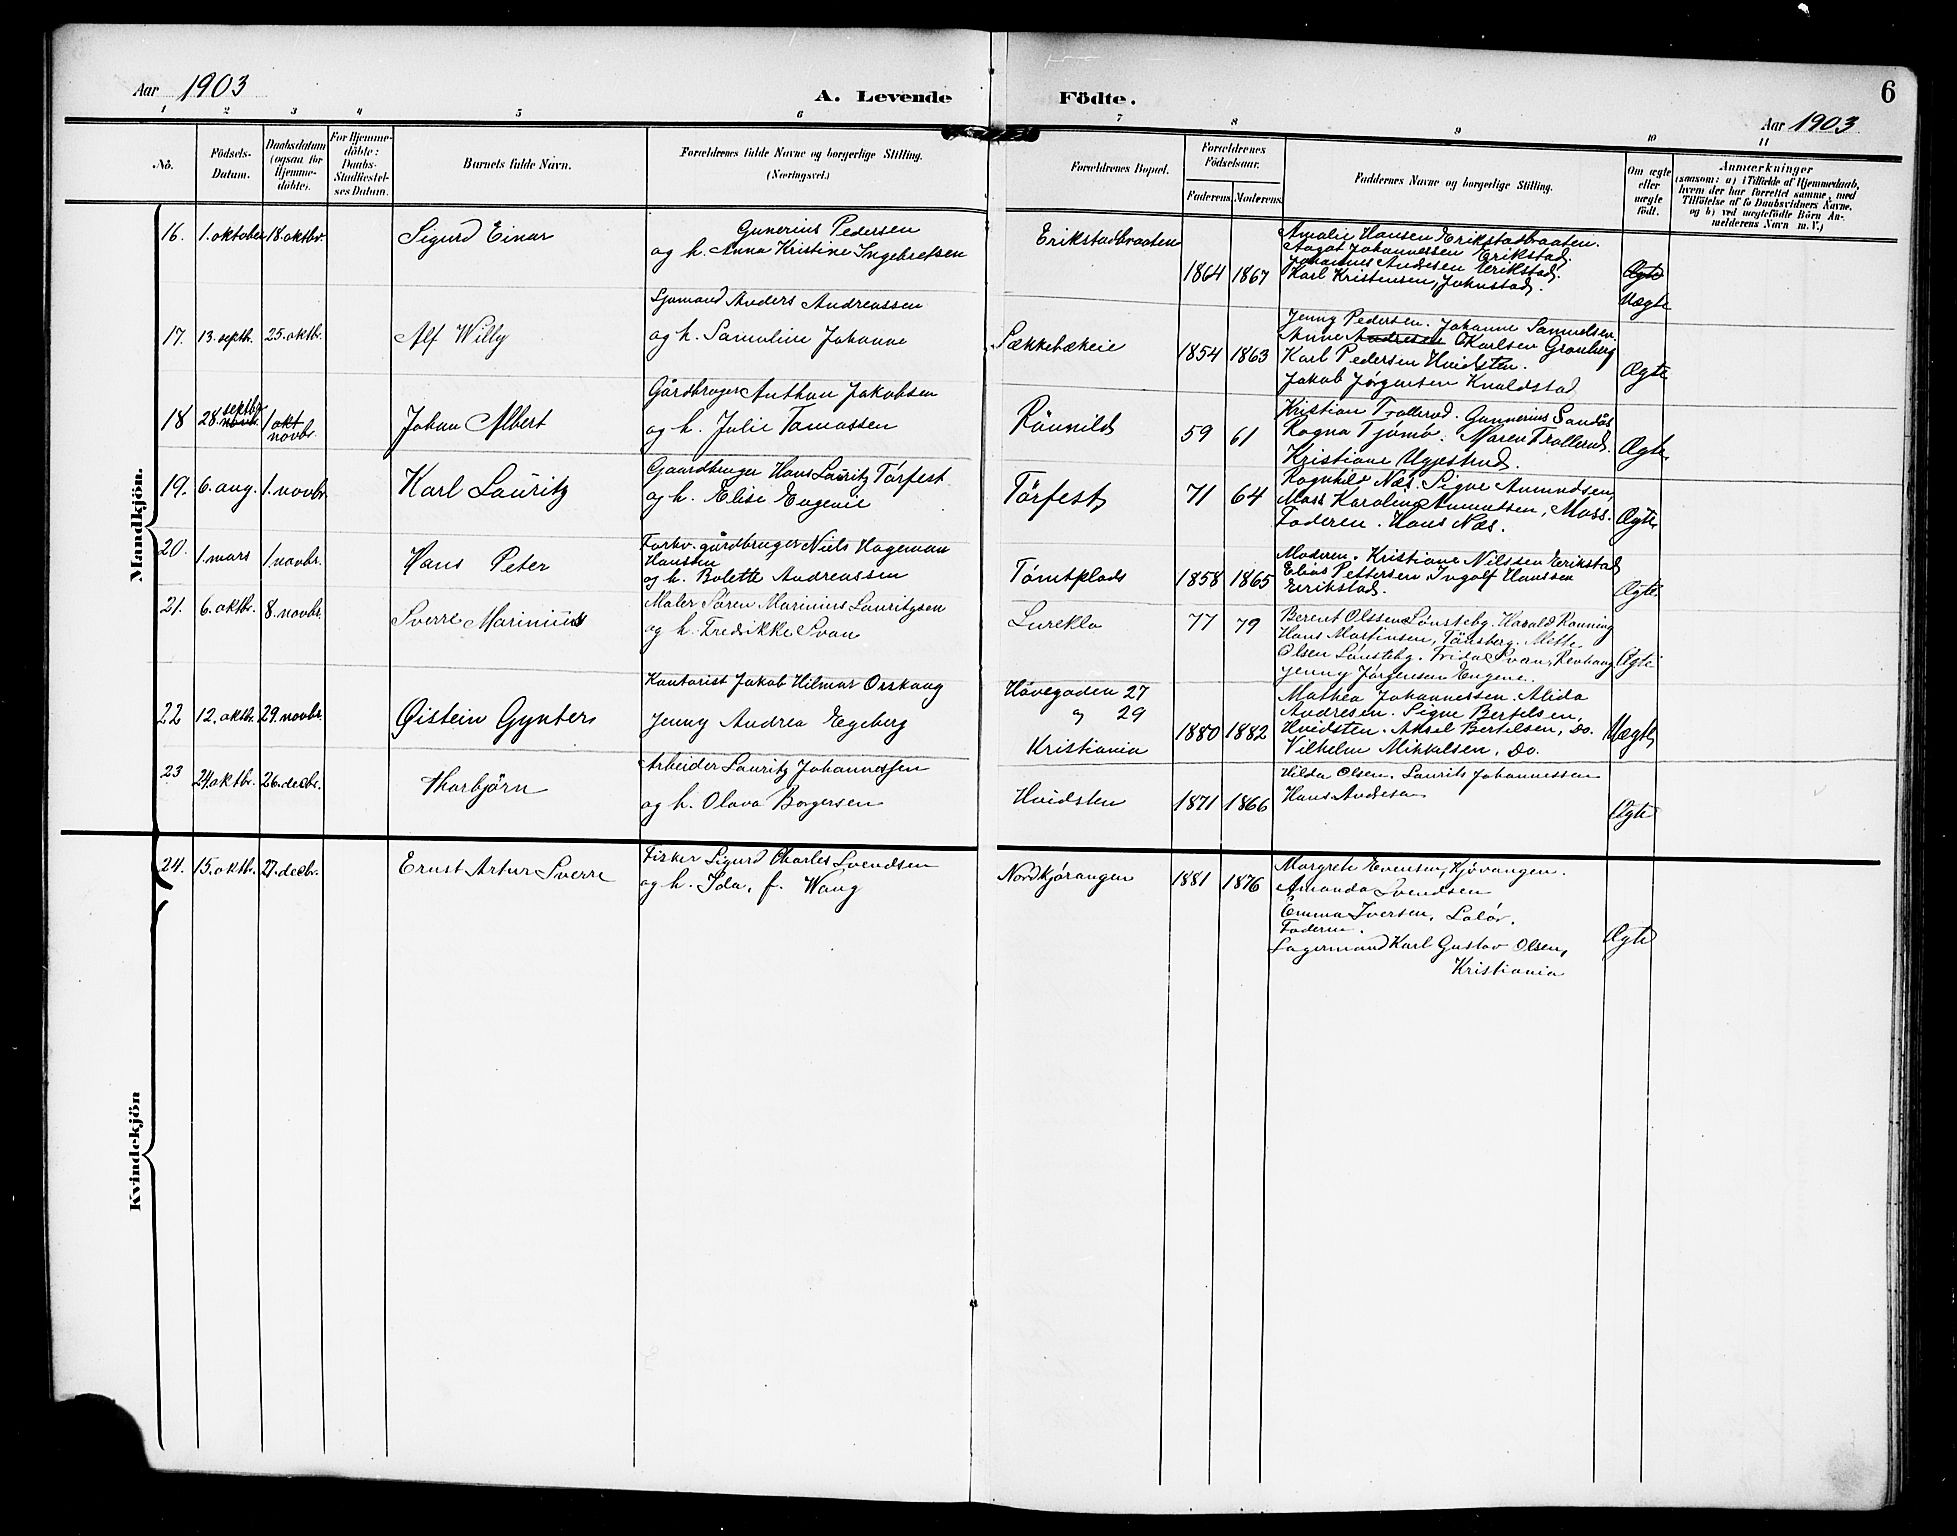 Aar 1903
A. Levende Födte.
6
Aar 1903
1 2 3 4 5 6 7 8 9 10 11
No.
Födsels-Datum.
Daabsdatum (ogsaa for Hjemme-döbte).
For Hjemme-döbte: Daabs-Stadfæstel-ses Datum.
Barnets fulde Navn.
Forældrenes fulde Navne og borgerlige Stilling. (Næringsvei.)
Forældrenes Bopæl.
Forældrenes Födselsaar.
Faderens. Moderens.
Faddernes Navne og borgerlige Stilling.
Om ægte eller uægte födt.
Anmærkninger
(saasom: a) i Tilfælde af Hjemmedaab,
hvem der har forrettet samme, med
Tilföielse af to Daabsvidners Navne,
og b) ved uægtefödte Börn An-
melderens Navn m. V.)
Mandkjön.
16. 1. oktober 18. oktbr. Sigurd Einar
Gunerius Pedersen
og h. Anna Kristine Ingebretsen
Erikstadbraaten
1864 1867
Amalie Hansen Erikstadbraaten.
Aagot Johannessen Erikstad.
Johannes Andresen Erikstad.
Karl Kristensen, Johnstad.
Ægte
Uægte
17. 13. septbr. 25. oktbr. Alf Willy
Sjømand Anders Andreassen
og h. Samoline Johanne
Sækkebækeie
1854 1863
Jenny Pedersen. Johanne Samuelsen.
Anne Andresen Karlsen Granberg
Karl Pedersen Hvidsten.
Jakob Jørgensen Knaldstad
Ægte
18 28. septbr novbr. 1 okt novbr. Johan Albert
Gårdbruger Anthon Jakobsen
og h. Julie Tomassen
Rånnild
59 61
Kristian Trollerud. Gunnerius Sandås
Ragna Tjömö. Maren Trollerud.
Kristiane Ugpestrud.
Ægte
19. 6. aug. 1. novbr. Karl Lauritz
Gaardbruger Hans Lauritz Törfest
og h. Elise Eugenie
Törfest
71 64
Ragnhild Næs. Signe Amundsen,
Moss Karoline Amundsen, Moss.
Faderen. Hans Næs.
Ægte
20. 1. mars 1. novbr. Hans Peter
Forhv. gårdbruger Niels Hageman
Hansten
og h. Bolette Andreassen
Tömtplads
1858 1865
Moderen. Kristiane Nilssen Erikstad
Elias Pettersen Ingolf Hanssen
Erikstad.
Ægte.
21. 6. oktbr. 8. novbr. Sverre Marinius
Maler Sören Marinius Lauritzsen
og h. Fredrikke Svan
Lurekla
77 79
Berent Olssen Lönsteby. Harald Ranning
Hans Martinsen, Tönsberg. Mette
Olsen Lönsteby. Frida Svan, Revhaug.
Jenny Jørgensen Engene.
Ægte
22 12. oktbr. 29. novbr. Øistein Gynter
Kontorist Jakob Hilmar Orskaug
Jenny Andrea Egeberg
Hövegaden 27
og 29
Kristiania
1880 1882
Mathea Johannessen. Alida
Andresen. Signe Bertelsen,
Hvidsten. Aksel Bertelsen, do.
Vilhelm Mikkelsen, do.
Uægte
23 24. oktbr. 26. decbr. Thorbjörn
Arbeider Lauritz Johannessen
og h. Olava Borgersen
Hvidsten
1871 1866
Hilda Olsen. Laurits Johannessen
Hans Andresen
Ægte
24. 15. oktbr. 27. decbr. Ernst Artur Sverre
Fisker Sigurd Charles Svendsen
og h. Ida, f. Wang
Nordkjørangen
1881 1876
Margrete Evensen, Kjövangen.
Amanda Svendsen
Emma Iversen, Laløv.
Faderen.
Lagermand Karl Gustav Olsen,
Kristiania
Ægte
Kvindekjön